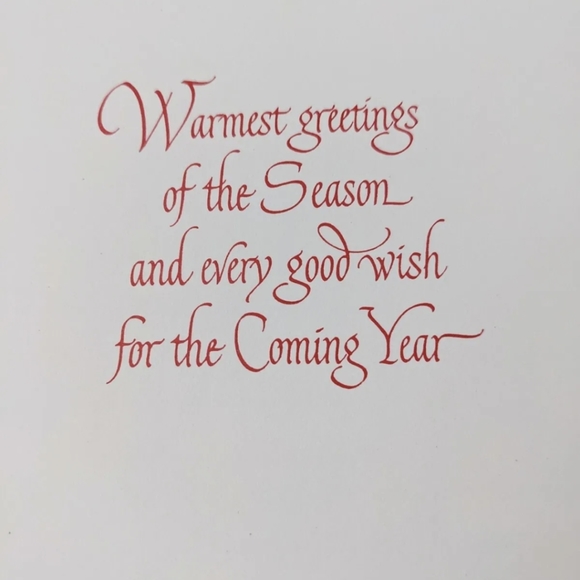 Warmest greetings
of the Season
and every good wish
for the Coming Year